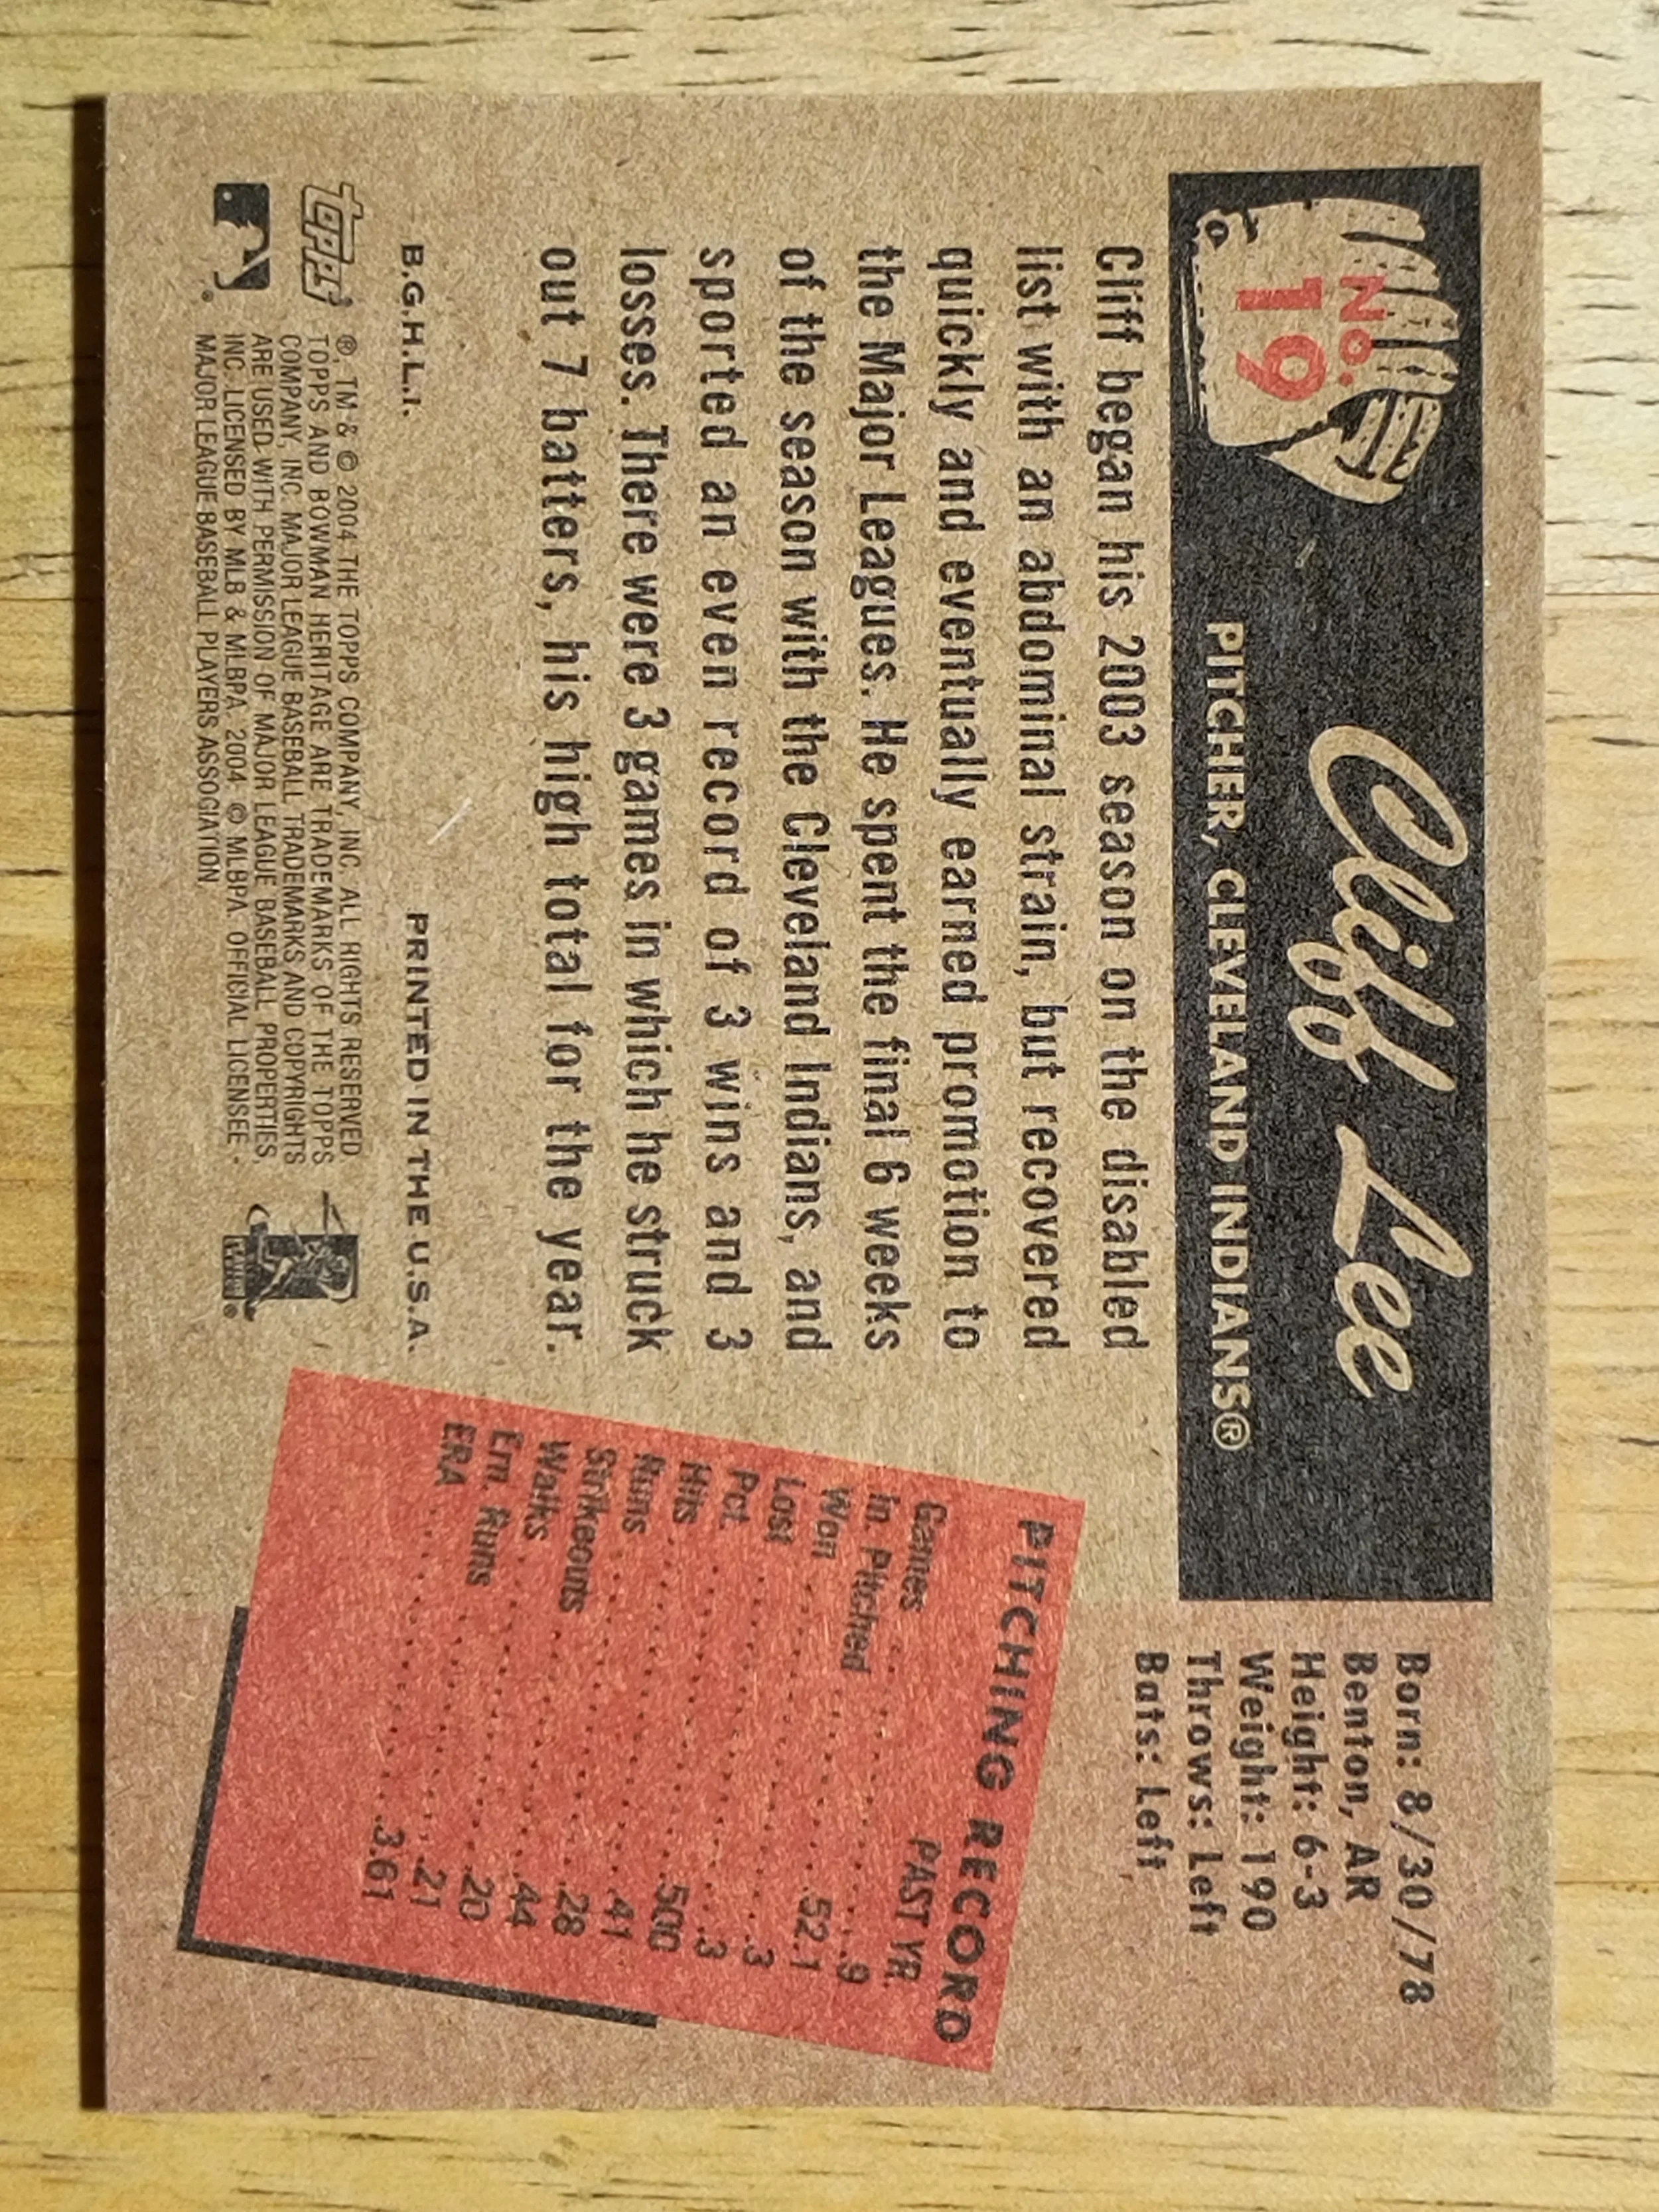 No.
19
Cliff Lee
PITCHER, CLEVELAND INDIANS®
Born: 8/30/78
Benton, AR
Height: 6-3
Weight: 190
Throws: Left
Bats: Left
Cliff began his 2003 season on the disabled
list with an abdominal strain, but recovered
quickly and eventually earned promotion to
the Major Leagues. He spent the final 6 weeks
of the season with the Cleveland Indians, and
sported an even record of 3 wins and 3
losses. There were 3 games in which he struck
out 7 batters, his high total for the year.
PITCHING RECORD
PAST YR.
Games .....9
In. Pitched .....52.1
Won .....3
Lost .....3
Pct. .....500
Hits .....41
Runs .....28
Strikeouts .....44
Walks .....20
Ern. Runs .....21
ERA .....3.61
B.G.H.L.I. PRINTED IN THE U.S.A.
topps
®, TM & © 2004 THE TOPPS COMPANY, INC. ALL RIGHTS RESERVED
TOPPS AND BOWMAN HERITAGE ARE TRADEMARKS OF THE TOPPS
COMPANY, INC. MAJOR LEAGUE BASEBALL TRADEMARKS AND COPYRIGHTS
ARE USED WITH PERMISSION OF MAJOR LEAGUE BASEBALL PROPERTIES,
INC. LICENSED BY MLB & MLBPA. 2004 © MLBPA. OFFICIAL LICENSEE -
MAJOR LEAGUE BASEBALL PLAYERS ASSOCIATION.